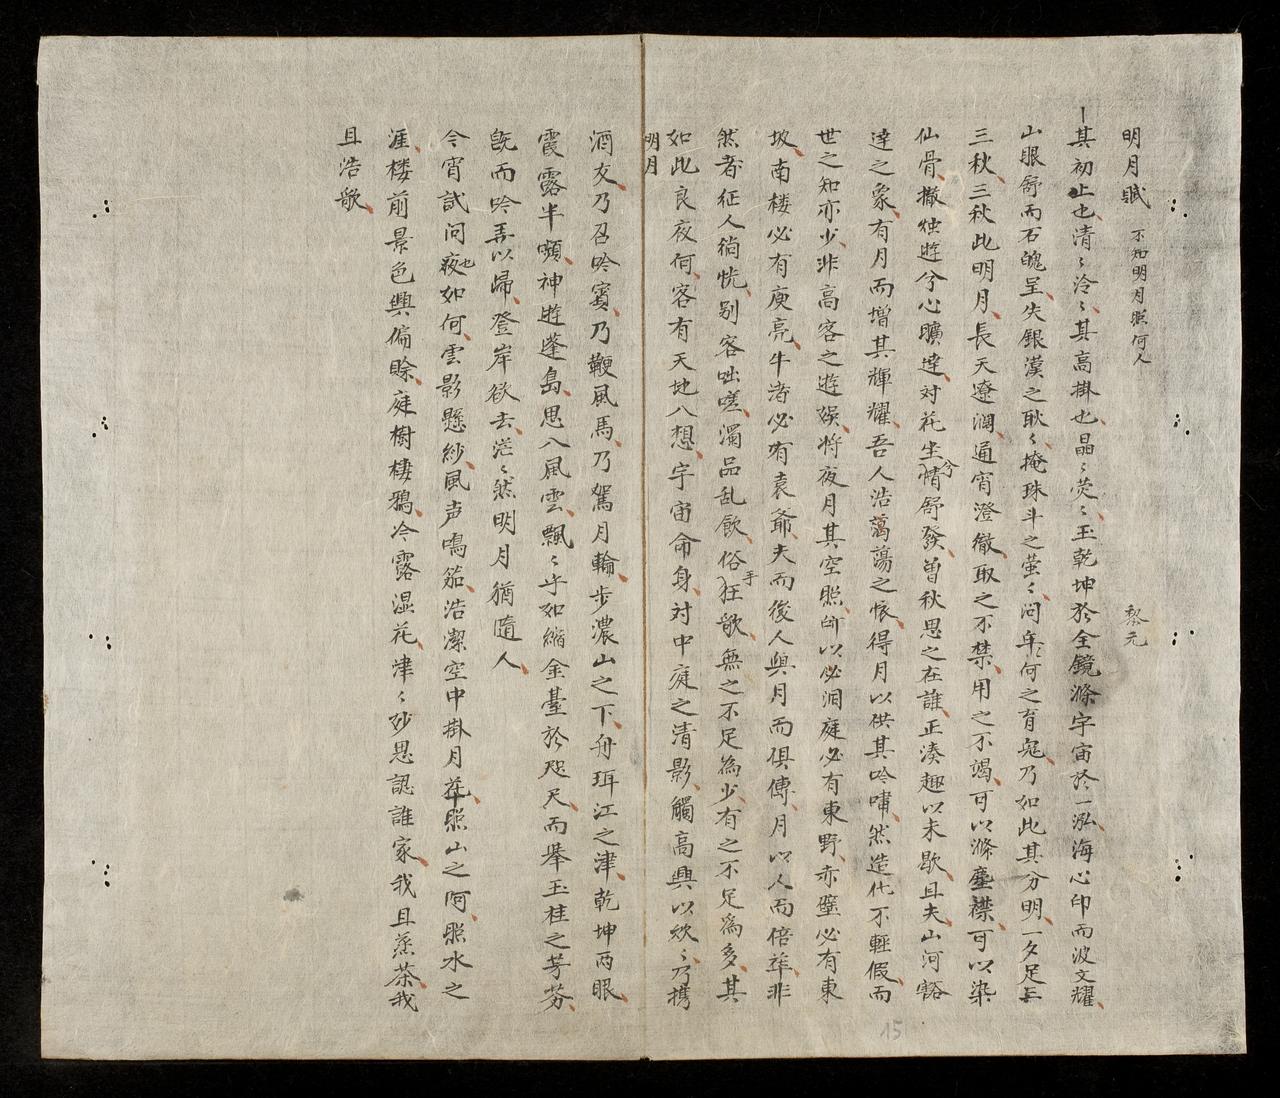 明月賦 不知明月照何人 黎元
其初上也清〻冷〻其高掛也晶〻熒〻玉乾坤於全鏡滌宇宙於一泓海心印而波文耀
山眼舒而石魄呈失銀漢之耿〻掩珠斗之螢〻问年〻何之育兔乃如此其分明一夕足三
三秋三秋此明月長天遼濶通宵澄徹取之不禁用之不竭可以滌塵襟可以染
仙骨撤烛遊兮心曠達対花坐兮情舒發曽秋思之在誰正湊趣以未歇且夫山河豁
達之象有月而增其輝耀吾人浩蕩之懐得月以供其吟嘯然造化不輕假而
世之知亦少非高客之遊娱将夜月其空照所以必泪庭必有東野赤壁必有東
坡南楼必有庾亮牛渚必有袁爺夫而後人與月而俱傳月以人而倍萃非
然者征人徜恍别客咄嗟濁品乱飲俗手狂歌無之不足為少有之不足為多其
如此良夜何客有天地八想宇宙命身対中庭之清影觸高興以欻〻乃携
明月
酒友乃召吟賓乃鞭風馬乃駕月輪步濃山之下舟珥江之津乾坤两眼
霞露半嚬神遊蓬島思八風雲飄〻乎如縮金臺於咫尺而舉玉桂之芳芬
既而吟弄以歸登岸欲去茫〻然明月猶隨人
今宵試问夜也如何雲影懸紗風声鳴笳浩潔空中掛月花照山之阿照水之
涯楼前景色興偏賒庭樹棲鴉冷露湿花津〻妙思認誰家我且蒸茶我
且浩歌
15